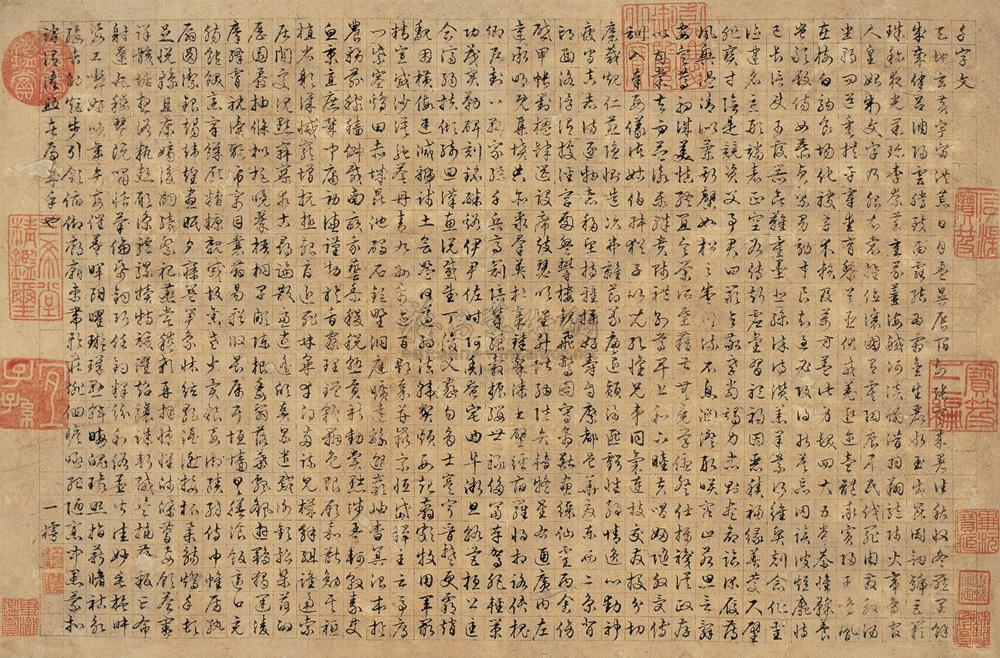 千字文
天地玄黄宇宙洪荒日月盈昃辰宿列張寒來暑往秋收冬藏閏餘
成歲律呂調陽雲騰致雨露結為霜金生麗水玉出崑岡劍號巨闕
珠稱夜光菓珍李柰菜重芥薑海鹹河淡鱗潛羽翔龍師火帝鳥官
人皇始制文字乃服衣裳推位讓國有虞陶唐弔民伐罪周發殷湯
坐朝問道垂拱平章愛育黎首臣伏戎羌遐邇壹體率賓歸王鳴鳳
在樹白駒食場化被草木賴及萬方蓋此身髮四大五常恭惟鞠養
豈敢毀傷女慕貞潔男效才良知過必改得能莫忘罔談彼短靡恃
己長信使可覆器欲難量墨悲絲染詩讚羔羊景行維賢剋念作聖
德建名立形端表正空谷傳聲虛堂習聽禍因惡積福緣善慶尺璧
非寶寸陰是競資父事君曰嚴與敬孝當竭力忠則盡命臨深履薄
夙興溫凊似蘭斯馨如松之盛川流不息淵澄取映容止若思言辭
安定篤初誠美慎終宜令榮業所基籍甚無竟學優登仕攝職從政存
以甘棠去而益詠樂殊貴賤禮別尊卑上和下睦夫唱婦隨外受傅
訓入奉母儀諸姑伯叔猶子比兒孔懷兄弟同氣連枝交友投分切
磨箴規仁慈隱惻造次弗離節義廉退顛沛匪虧性靜情逸心動神
疲守真志滿逐物意移堅持雅操好爵自縻都邑華夏東西二京背
邙面洛浮渭據涇宮殿盤鬱樓觀飛驚圖寫禽獸畫綵仙靈丙舍傍
啟甲帳對楹肆筵設席鼓瑟吹笙升階納陛弁轉疑星右通廣內左
達承明既集墳典亦聚群英杜稾鍾隸漆書壁經府羅將相路俠槐
卿戶封八縣家給千兵高冠陪輦驅轂振纓世祿侈富車駕肥輕策
功茂實勒碑刻銘磻溪伊尹佐時阿衡奄宅曲阜微旦孰營桓公匡
合濟弱扶傾綺迴漢惠說感武丁俊乂密勿多士寔寧晉楚更霸趙
魏困橫假途滅虢踐土會盟何遵約法韓弊煩刑起翦頗牧用軍最
精宣威沙漠馳譽丹青九州禹跡百郡秦并嶽宗恒岱禪主云亭鴈
門紫塞雞田赤城昆池碣石鉅野洞庭曠遠綿邈巖岫杳冥治本於
農務茲稼穡俶載南畝我藝黍稷稅熟貢新勸賞黜陟孟軻敦素史
魚秉直庶幾中庸勞謙謹敕聆音察理鑒貌辨色貽厥嘉猷勉其祗
植省躬譏誡寵增抗極殆辱近恥林皋幸即兩疏見機解組誰逼索
居閑處沉默寂寥求古尋論散慮逍遙欣奏累遣慼謝歡招渠荷的
歷園莽抽條枇杷晚翠梧桐早凋陳根委翳落葉飄颻遊鵾獨運凌
摩絳霄耽讀翫市寓目囊箱易輶攸畏屬耳垣牆具膳飡飯適口充
腸飽飫烹宰饑厭糟糠親戚故舊老少異糧妾御績紡侍巾帷房紈
扇圓潔銀燭煒煌晝眠夕寐藍筍象床絃歌酒讌接盃舉觴矯手頓
足悅豫且康嫡後嗣續祭祀蒸嘗稽顙再拜悚懼恐惶牋牒簡要顧答審
詳骸垢想浴執熱願涼驢騾犢特駭躍超驤誅斬賊盜捕獲叛亡布
射遼丸嵇琴阮嘯恬筆倫紙鈞巧任釣釋紛利俗並皆佳妙毛施淑
姿工顰妍笑年矢每催羲暉朗曜琁璣懸斡晦魄環照指薪修祜永
綏吉劭矩步引領俯仰廊廟束帶矜莊徘徊瞻眺孤陋寡聞愚蒙等
誚謂語助者焉哉乎也